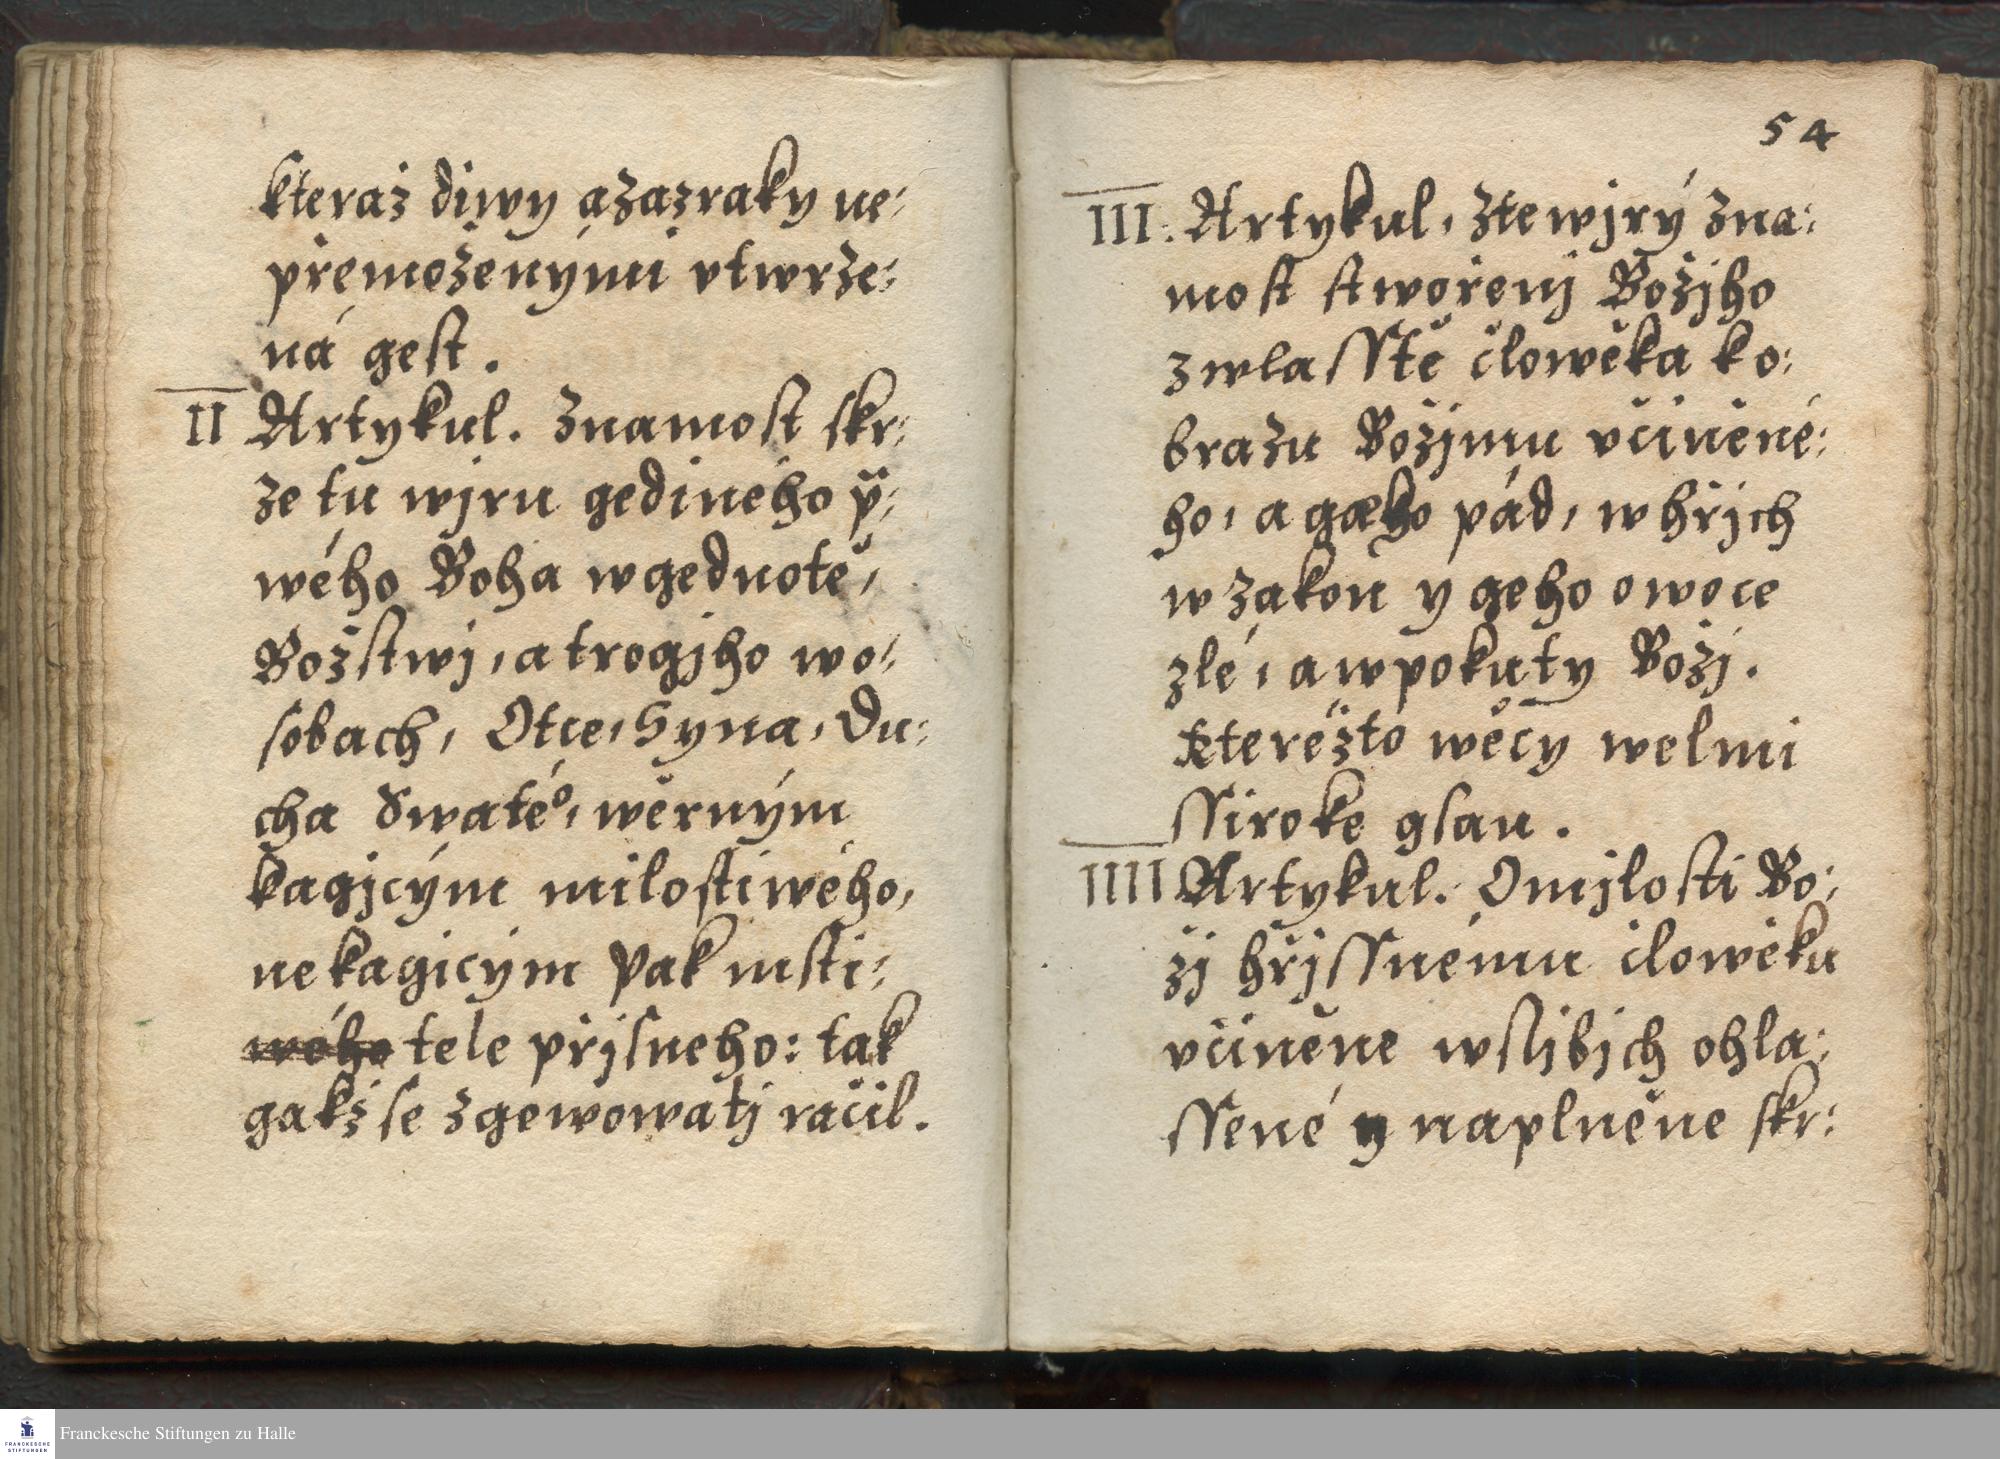 kteraż diwy a zazraky ne:
přemoženými vtwrze:
ná gest.
II Artykul. Znamost skr:
ze tu wjru gediného ÿ:
wého Boha w gednotě,
Božstwj, a trogjho wo:
sobach, Otce, Syna, Du:
cha Swatéº, wěrným
kagjcým milostiwého,
nekagicým pak msti:
wého tele přjsneho: tak
gakž se zgewowatj račil.
54
III. Artykul, z te wjrý zna:
most stwořenj Božjho
zwlasstě člowěka k o:
brazu Božjmu včiněné:
ho, a gak o pád, w hřjch
w zákon y geho owoce
zlé, a w pokuty Božj.
kterežto wěcy welmi
ssiroke gsau.
IIII Artykul. O mjlosti Bo:
žj hřjssnému člowěku
včiněne w slibjch ohla:
ssené y naplněne skr:
Franckesche Stiftungen zu Halle
FRANCKESCHE
STIFTUNGEN